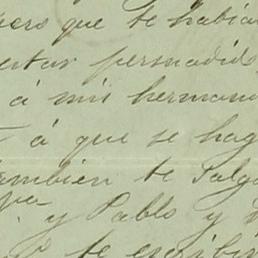 que te habia
estar persuadid
á mis herman
á que se hag
tambien te salg
y Pablo y
te escribir